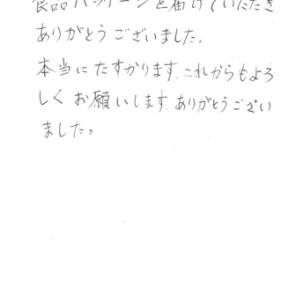 食品パッケージを届けていただき
ありがとうございました。
本当にたすかります。これからもよろ
しくお願いします。ありがとうござい
ました。